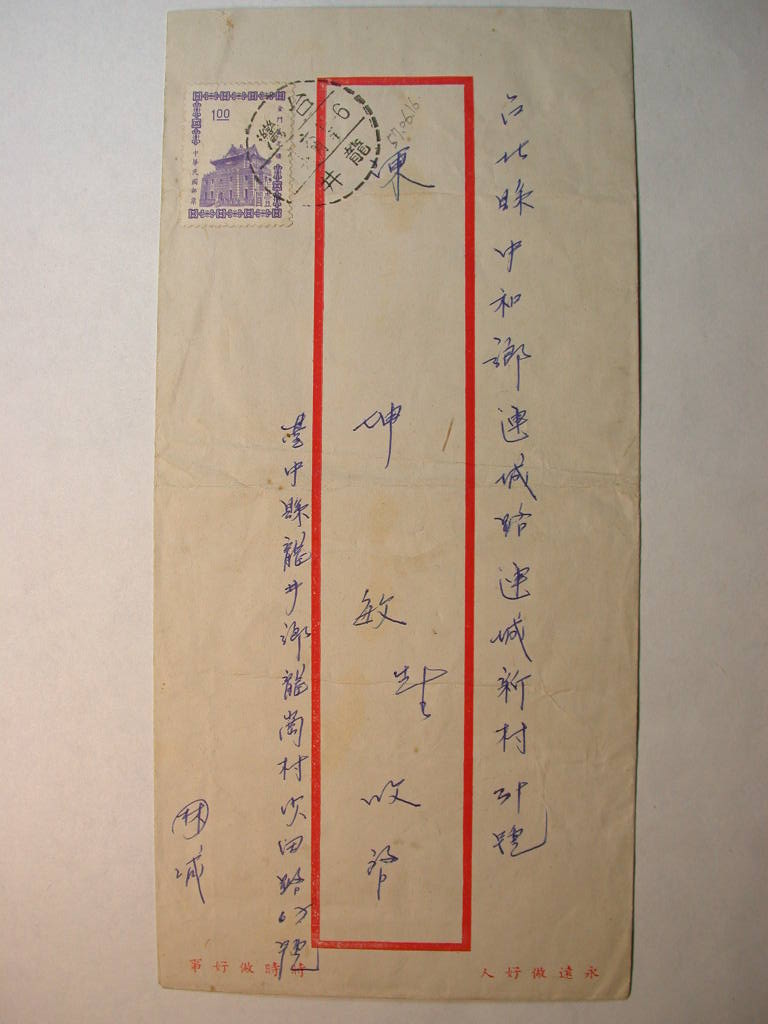 台北縣中和鄉連城路連城新村號
陳伸敏先生收啟
臺中縣龍井鄉龍崗村路號
林城
1.00
中華民國郵票
台灣
龍井
永遠做好人
時時做好事